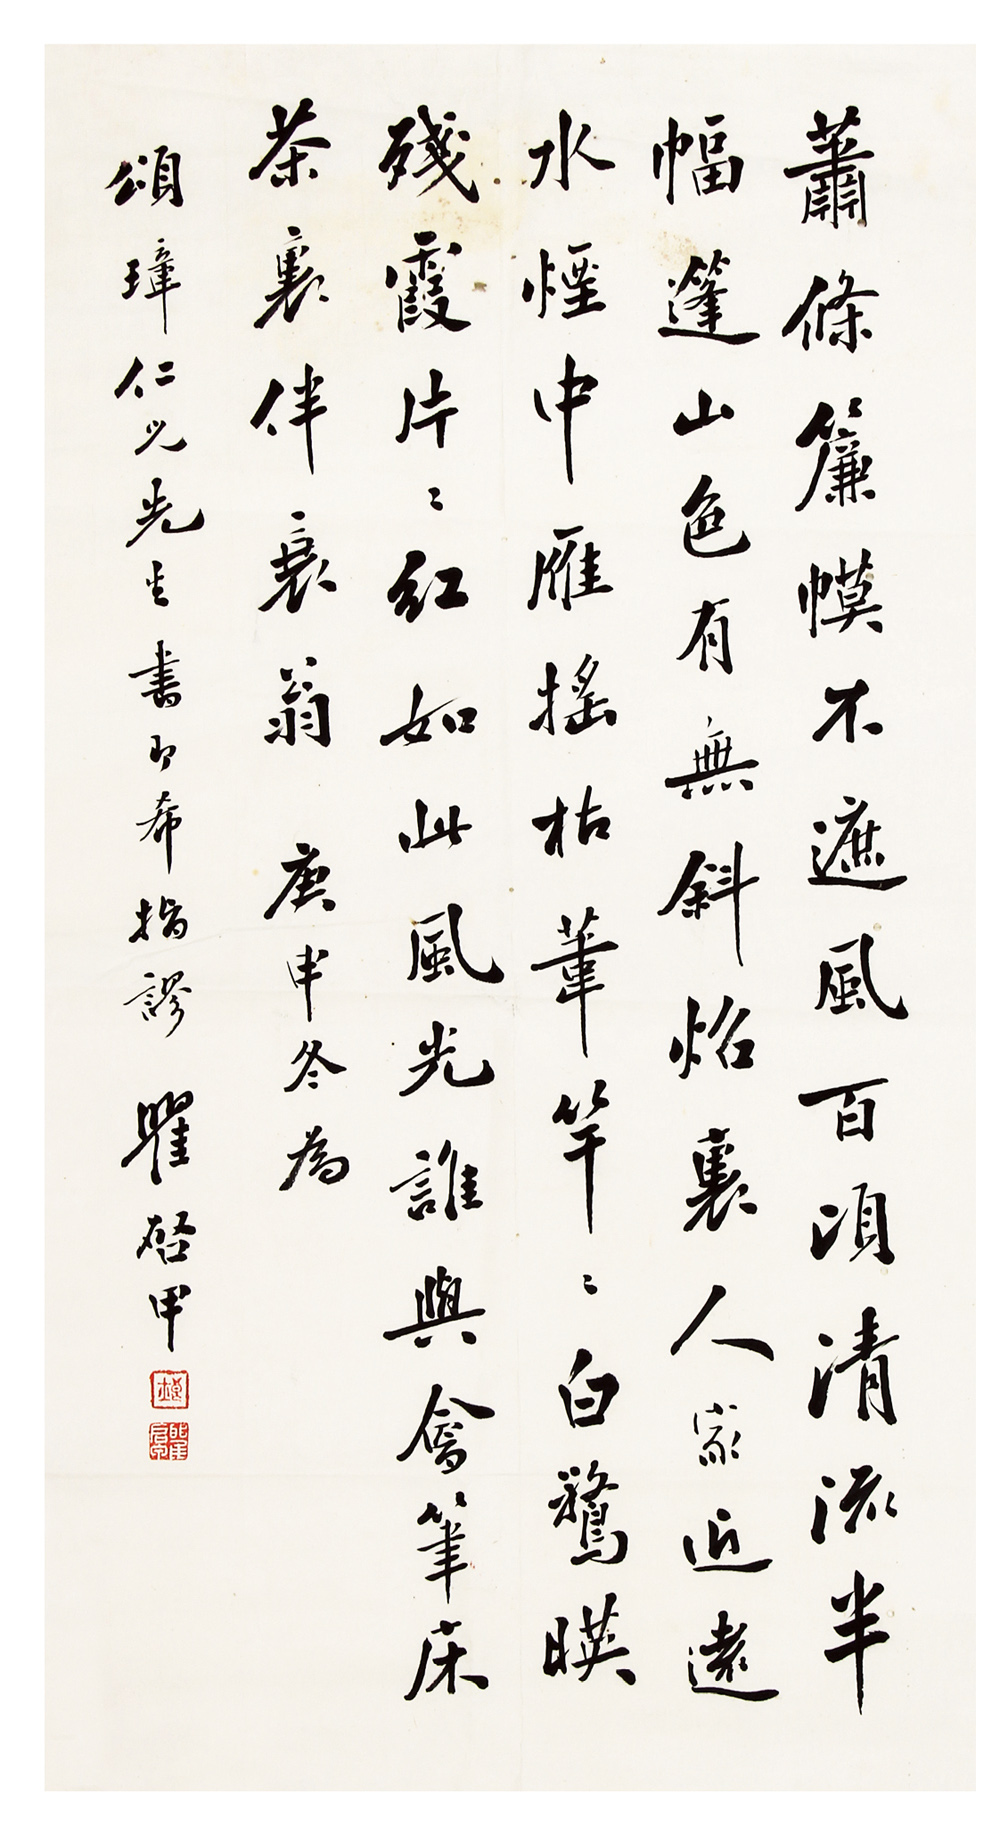 蕭條簾幙不遮風百頃清流半
幅篷山色有無斜焰裏人家近遠
水煙中雁搖枯葦竿〻白鷺暎
殘霞片〻紅如此風光誰與會筆床
茶裏伴衰翁 庚申冬為
頌璋仁兄先生書即希指謬 瞿啓甲